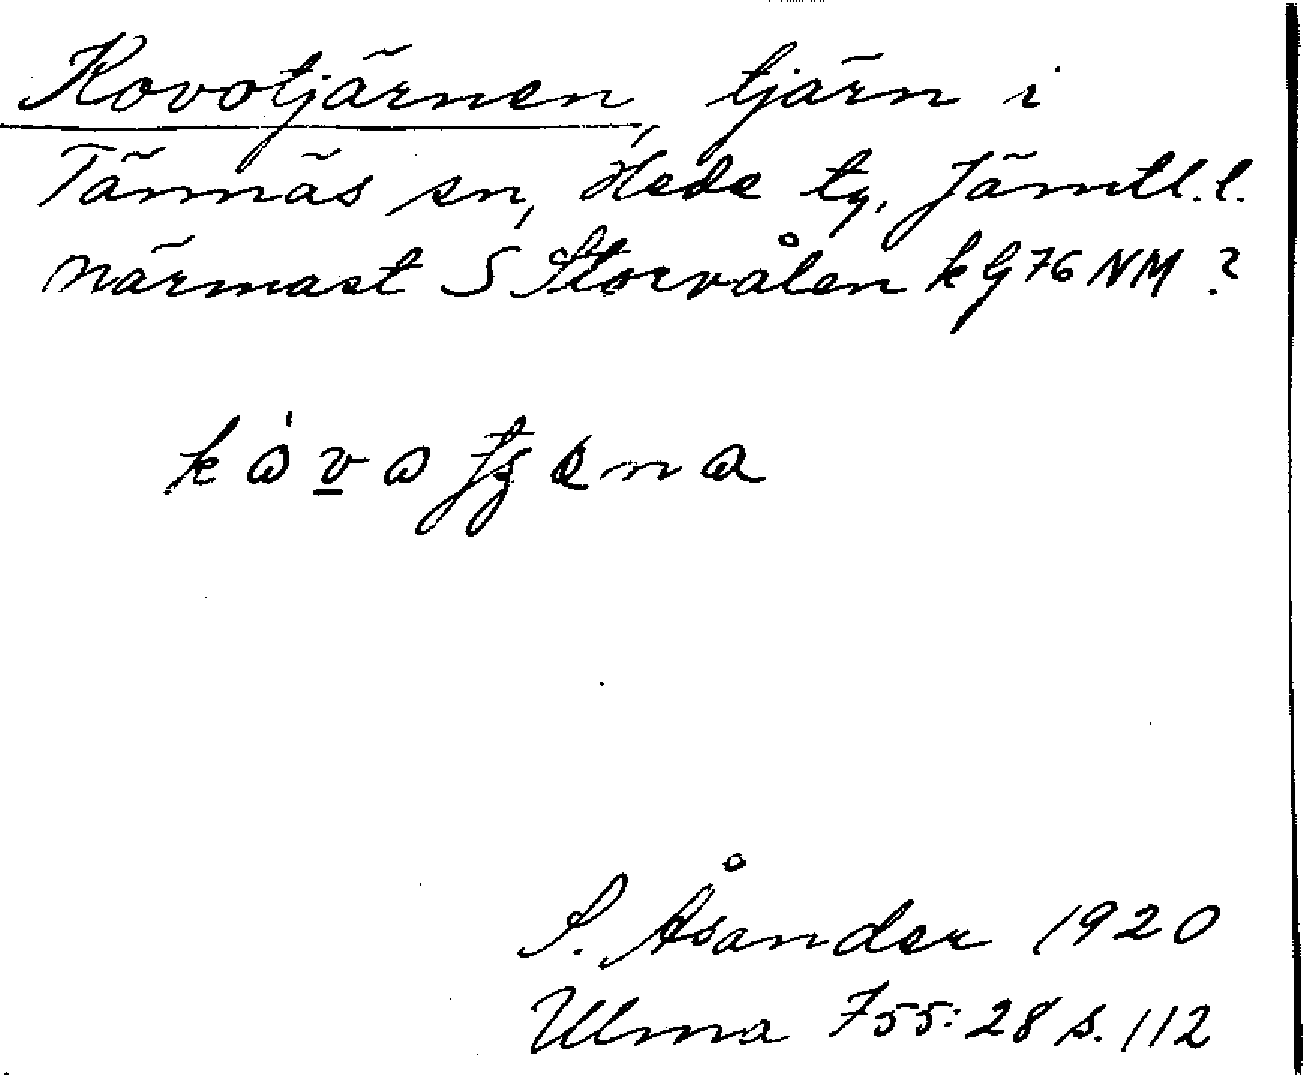 Kovotjärnen, tjärn i
Tännäs sn, Hede tg, Jämtl.l.
närmast S Storvålen kG76NM?
kovotjena
S. Åsander 1920
Ulma 755:28 s. 112